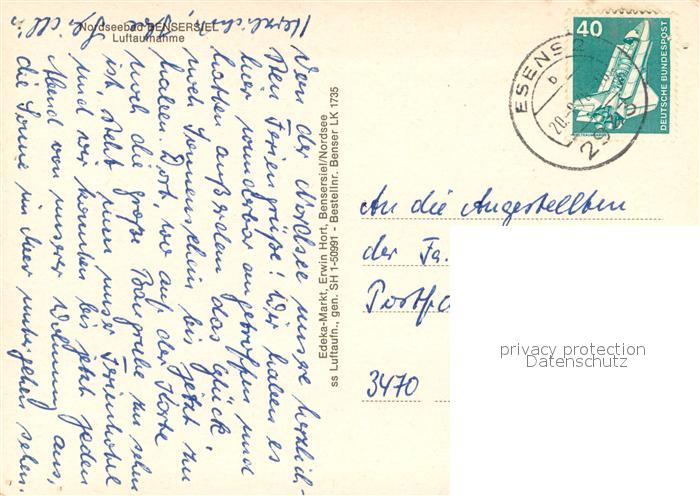 Nordseebad BENSERSIEL
Luftaufnahme
Von der Nordsee unsere herzlich-
sten Feriengrüße! Wir haben es
hier wunderbar angetroffen und
hatten außerdem das Glück
noch Sonnenschein bis jetzt zu
haben. Dort, wo auf der Karte
noch die große Baugrube zu sehen
ist steht nun unser Ferienhotel
und wir konnten bis jetzt jeden
Abend von unserer Wohnung aus,
die Sonne im Meer untergehen sehen.
Herzlichst, Ihre
Edeka-Markt, Erwin Hort, Bensersiel/Nordsee
ss Luftaufn., gen. SH 1-50991 - Bestellnr. Benser LK 1735
40
DEUTSCHE BUNDESPOST
ESENS
b
An die Angestellten
der Fa.
3470
privacy protection
Datenschutz